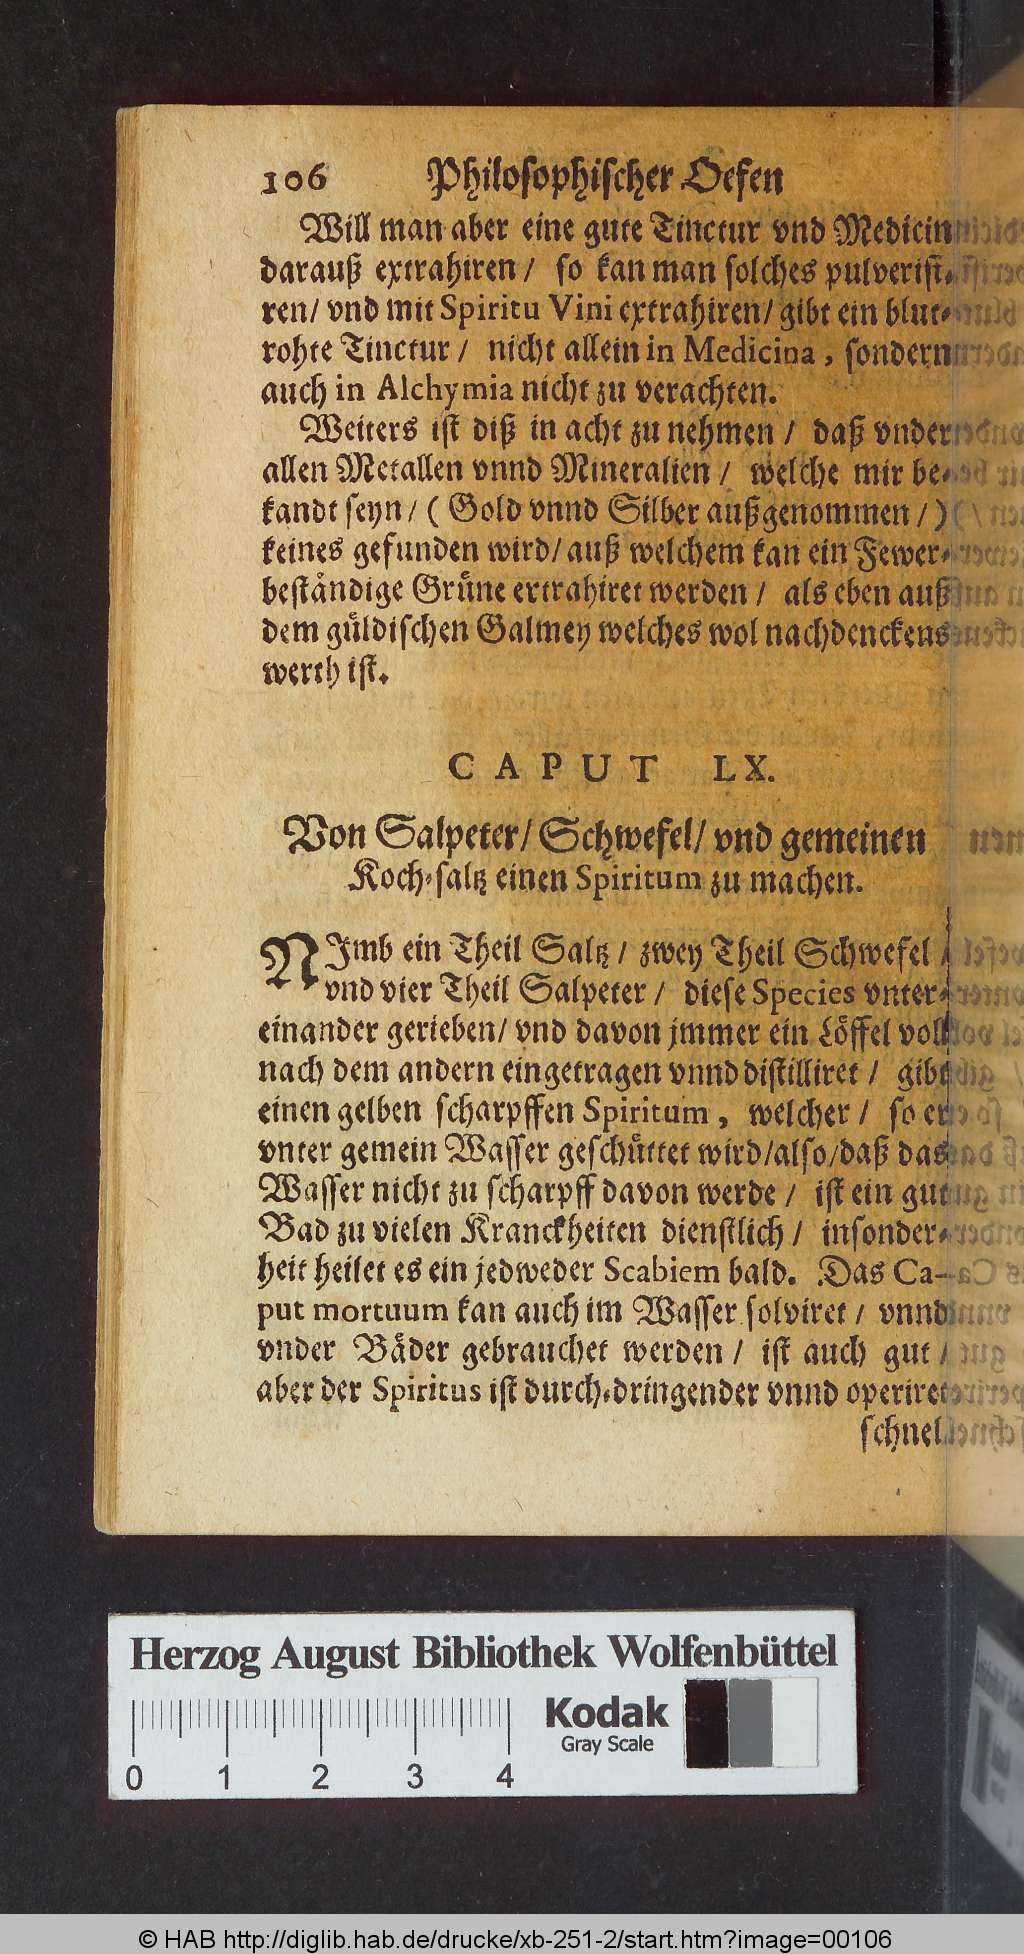 106 Philosophischer Oefen
Will man aber eine gute Tinctur vnd Medicin
darauß extrahiren / so kan man solches pulverisi-
ren / vnd mit Spiritu Vini extrahiren / gibt ein blut-
rohte Tinctur / nicht allein in Medicina, sondern
auch in Alchymia nicht zu verachten.
Weiters ist diß in acht zu nehmen / daß vnder
allen Metallen vnnd Mineralien / welche mir be-
kandt seyn / ( Gold vnnd Silber außgenommen / )
keines gefunden wird / auß welchem kan ein Fewer-
beständige Grüne extrahiret werden / als eben auß
dem güldischen Galmey welches wol nachdenckens
werth ist.
CAPUT LX.
Von Salpeter / Schwefel / vnd gemeinen
Koch-saltz einen Spiritum zu machen.
NImb ein Theil Saltz / zwey Theil Schwefel /
vnd vier Theil Salpeter / diese Species vnter-
einander gerieben / vnd davon jmmer ein Löffel voll
nach dem andern eingetragen vnnd distilliret / gibt
einen gelben scharpffen Spiritum, welcher / so er
vnter gemein Wasser geschüttet wird / also / daß das
Wasser nicht zu scharpff davon werde / ist ein gut
Bad zu vielen Kranckheiten dienstlich / insonder-
heit heilet es ein jedweder Scabiem bald. Das Ca-
put mortuum kan auch im Wasser solviret / vnnd
vnder Bäder gebrauchet werden / ist auch gut /
aber der Spiritus ist durch-dringender vnnd operiret
schnel
Herzog August Bibliothek Wolfenbüttel
Kodak
Gray Scale
0 1 2 3 4
© HAB http://diglib.hab.de/drucke/xb-251-2/start.htm?image=00106